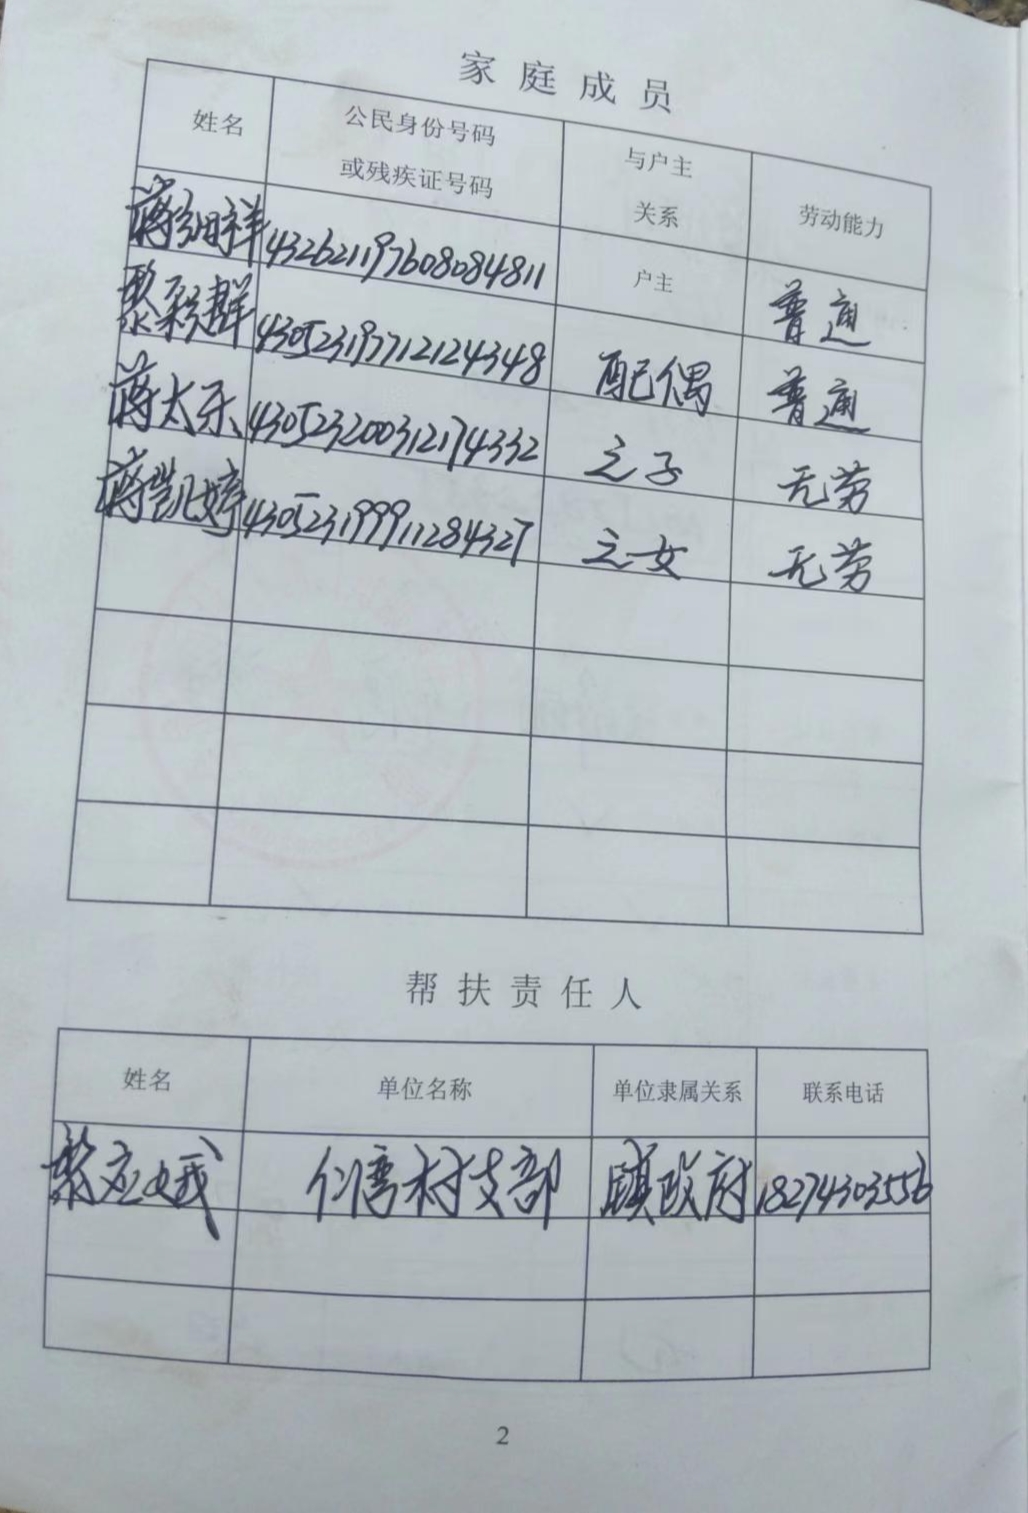 家庭成员
姓名 公民身份号码 或残疾证号码 与户主 关系 劳动能力
蒋细祥 432621197608084811 户主 普通
黎 群 430523197712124348 配偶 普通
蒋太乐 430523200312174332 之子 无劳
蒋凯婷 430523199911284327 之女 无劳
帮扶责任人
姓名 单位名称 单位隶属关系 联系电话
黎应娥 仁湾村支部 镇政府 18274303556
2